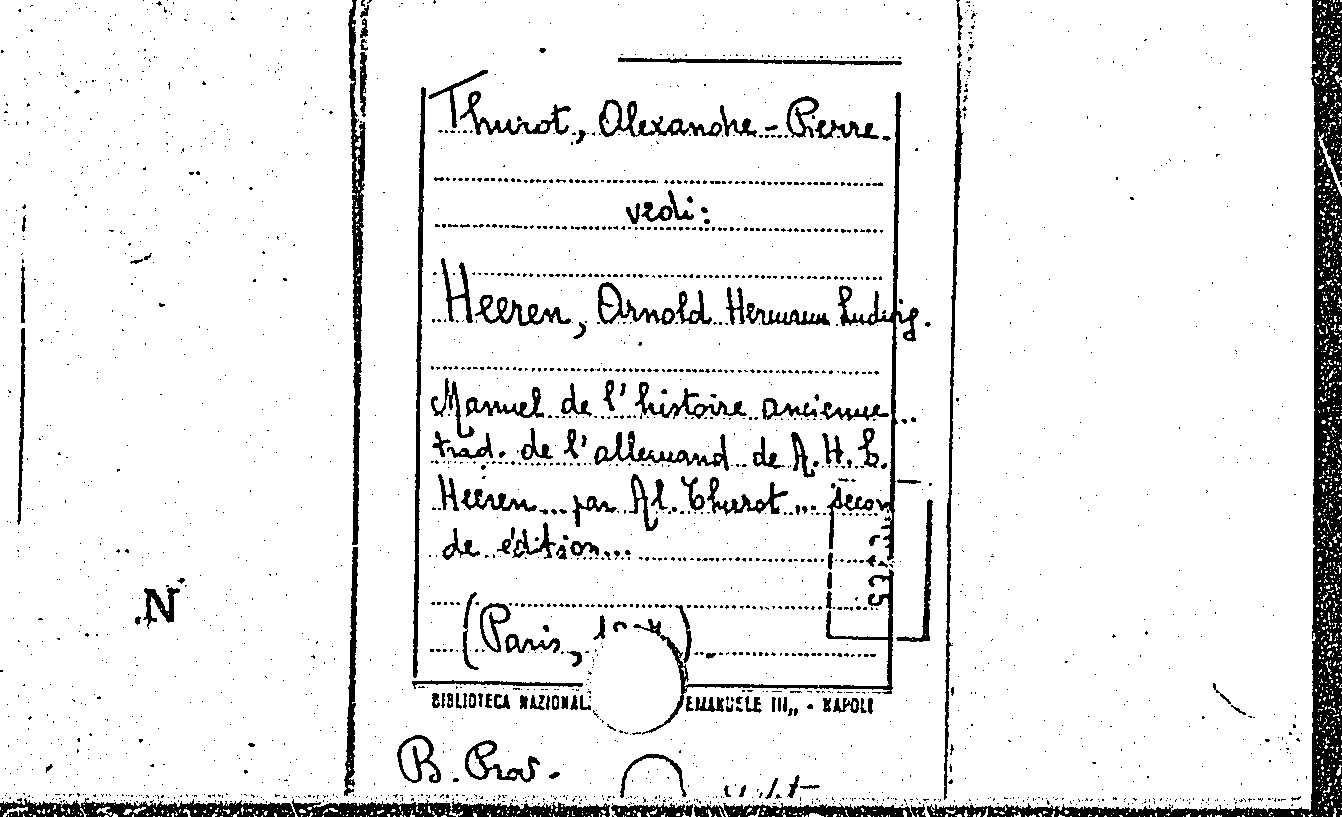 Thurot, Alexandre-Pierre.
vedi:
Heeren, Arnold Hermann Ludwig.
Manuel de l'histoire ancienne...
trad. de l'allemand de A. H. L.
Heeren... par Al. Thurot... secon
de édition...
(Paris,
BIBLIOTECA NAZIONAL EMANUELE III„ - NAPOLI
B. Prov.
N